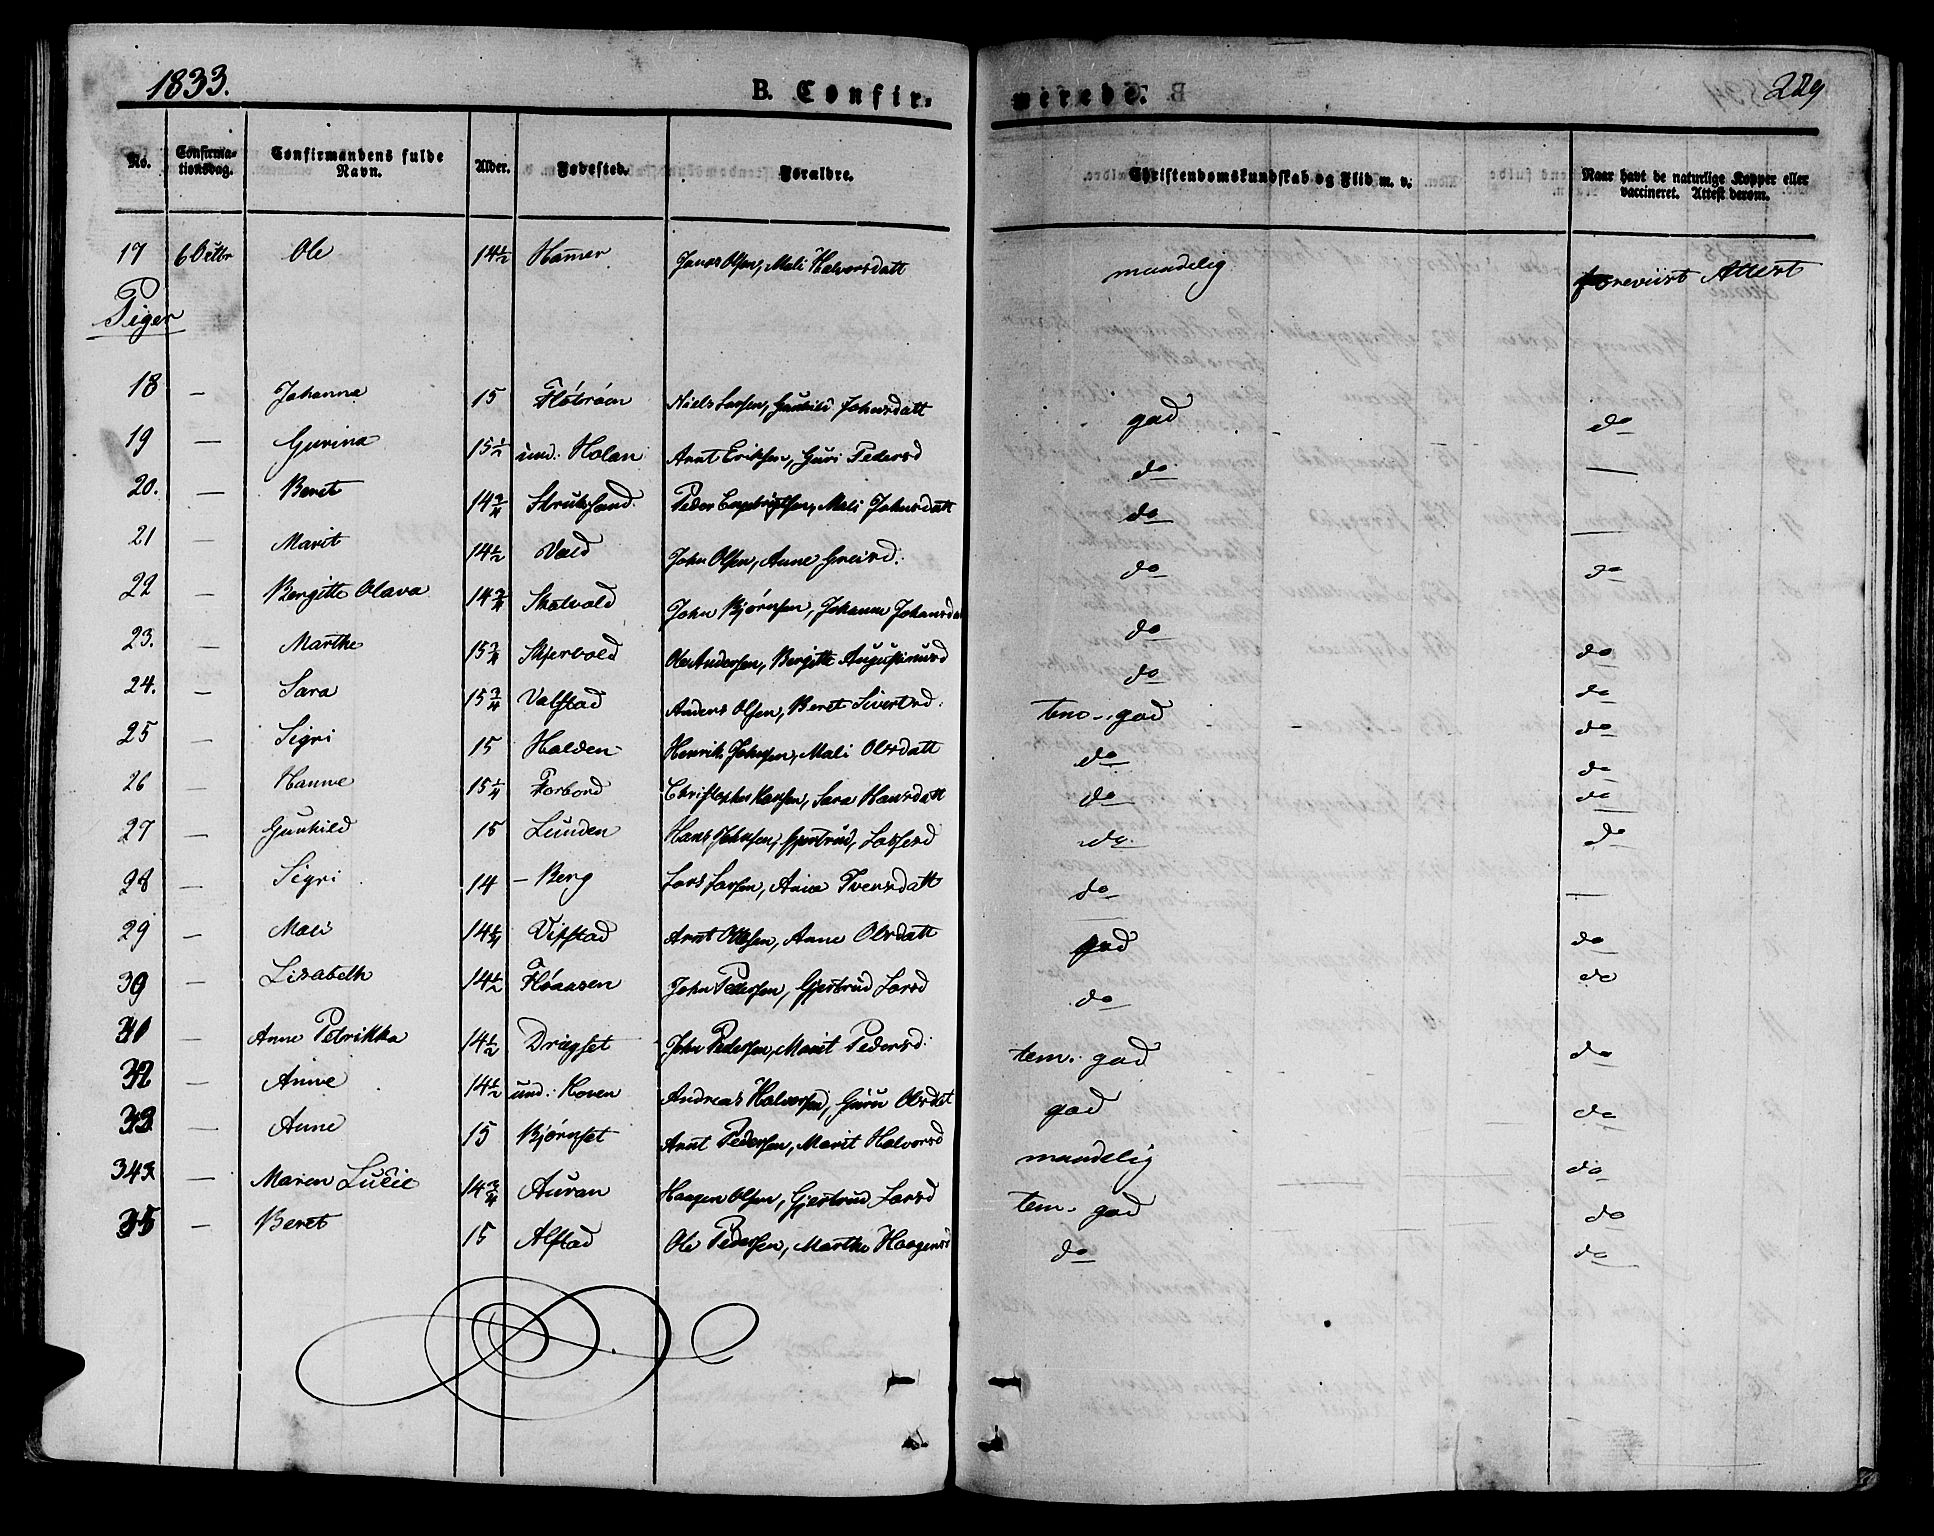 1833. B. Confir- merede. 229
No. Confirma-tionsdag. Confirmandens fulde Navn. Alder. Fødested. Forældre. Christendomskundskab og Flid m. v. Naar havt de naturlige Kopper eller vaccineret. Attest derom.
17 6 Octbr Ole 14½ Hamer Olsen, Mali Halvorsdatt maadelig foreviist Attest
Piger
18 — Johanna 15 Niels Larsen, Gunild Johnsdatt god do
19 — Gurina 15½ und: Holan Arnt Eriksen, Guri Pedersd do —
20. — Beret 14¾ Peder Engebrigtsen, Mali Johnsdatt do —
21 — Marit 14½ Vold John Olsen, Anne do do
22 — Bergitte Olava 14¾ Skatvold John Bjørnsen, Johanna Johansdat do
23. — Marthe 15¾ Skjervold Ole Andersen, Bergitte Augustinusd do do
24. — Sara 15¾ Valstad Anders Olsen, Beret Sivertsd. tem. god do
25 — Sigri 15 Halden Henrik Johnsen, Mali Olsdatt do do
26 — Hanne 15¼ Forbord Christopher Larsen, Sara Hansdatt do do
27 — Gunhild 15 Lunden Hans Johnsen, Gjertrud Larsesd do do
28 — Sigri 14 — Berg Lars Larsen, Anne Iversdatt do —
29 — Mali 14¼ Vifstad Arnt Olsen, Anne Olsdatt god do
30 — Lisabeth 14½ Fløaasen John Pedersen, Gjertrud Larsd do do
31 — Anne Petrikka 14½ Dragset John Pedersen, Marit Pedersd. tem. god do
32 — Anne 14½ und: Hoven Andreas Halvorsen, Guru Olsdat god do
33 — Anne 15 Bjørnset Arnt Pedersen, Marit Halvorsd maadelig do
34 — Maren Lucie 14¾ Auran Haagen Olsen, Gjertrud Larsd tem. god do
35 — Beret 15 Alstad Ole Pedersen, Marthe Haagensd do do